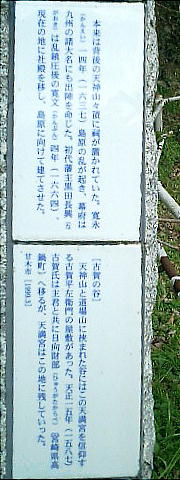 本来は背後の天神山々頂に祠が置かれていた。寛永
(かんえい)一四年(一六三七)島原の乱が起き、幕府は
九州の諸大名にも出陣を命じた。初代藩主黒田長興
は乱鎮圧後の寛文(かんぶん)四年(一六六四)、
現在の地に社殿を移し、島原に向けて建てさせた。
[古賀の谷]
天神山と道場山に挟まれた谷にはこの天満宮を信仰す
る古賀平左衛門の屋敷があった。天正一五年(一五八七)
古賀氏は主君と共に日向財部(宮崎県高
鍋町)へ移るが、天満宮はこの地に残していった。
甘木市